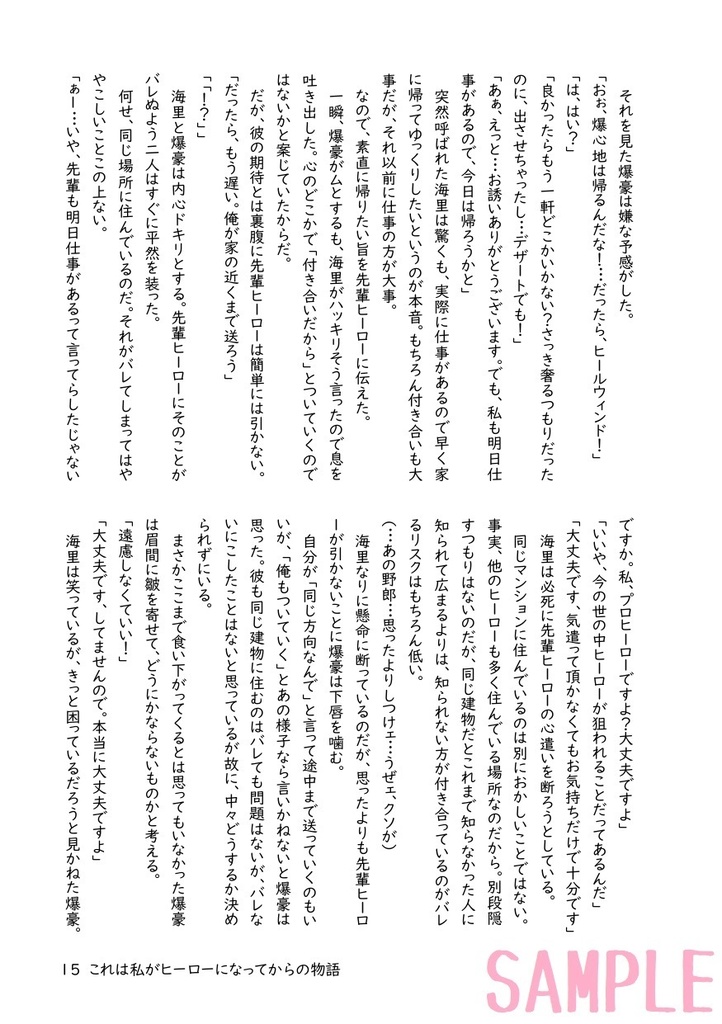 それを見た爆豪は嫌な予感がした。
「おぉ、爆心地は帰るんだな！…‥だったら、ヒールウィンド！」
「は、はい？」
「良かったらもう一軒どこかいかない？さっき奢るつもりだった
のに、出させちゃったし…デザートでも！」
「あぁ、えっと…お誘いありがとうございます。でも、私も明日仕
事があるので、今日は帰ろうかと」
　突然呼ばれた海里は驚くも、実際に仕事があるので早く家
に帰ってゆっくりしたいというのが本音。もちろん付き合いも大
事だが、それ以前に仕事の方が大事。
　なので、素直に帰りたい旨を先輩ヒーローに伝えた。
　一瞬、爆豪がムとするも、海里がハッキリそう言ったので息を
吐き出した。心のどこかで「付き合いだから」とついていくので
はないかと案じていたからだ。
　だが、彼の期待とは裏腹に先輩ヒーローは簡単には引かない。
「だったら、もう遅い。俺が家の近くまで送ろう」
「「！？」」
　海里と爆豪は内心ドキリとする。先輩ヒーローにそのことが
バレぬよう二人はすぐに平然を装った。
　何せ、同じ場所に住んでいるのだ。それがバレてしまってはや
ややこしいことこの上ない。
「ぁー…いや、先輩も明日仕事があるって言ってらしたじゃない
ですか。私、プロヒーローですよ？大丈夫ですよ」
「いいや、今の世の中ヒーローが狙われることだってあるんだ」
「大丈夫です、気遣って頂かなくてもお気持ちだけで十分です」
　海里は必死に先輩ヒーローの心遣いを断ろうとしている。
　同じマンションに住んでいるのは別におかしいことではない。
事実、他のヒーローも多く住んでいる場所なのだから。別段隠
すつもりはないのだが、同じ建物だとこれまで知らなかった人に
知られて広まるよりは、知られない方が付き合っているのがバレ
るリスクはもちろん低い。
（…あの野郎…思ったよりしつけェ…うぜェ、クソが）
　海里なりに懸命に断っているのだが、思ったよりも先輩ヒーロ
ーが引かないことに爆豪は下唇を噛む。
　自分が「同じ方向なんで」と言って途中まで送っていくのもい
いが、「俺もついていく」とあの様子なら言いかねないと爆豪は
思った。彼も同じ建物に住むのはバレても問題はないが、バレな
いにこしたことはないと思っているが故に、中々どうするか決め
られずにいる。
　まさかここまで食い下がってくるとは思ってもいなかった爆豪
は眉間に皺を寄せて、どうにかならないものかと考える。
「遠慮しなくていい！」
「大丈夫です、してませんので。本当に大丈夫ですよ」
　海里は笑っているが、きっと困っているだろうと見かねた爆豪。
15 これは私がヒーローになってからの物語
SAMPLE